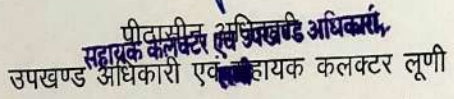 पीठासीन अधिकारी
सहायक कलक्टर एवं उपखण्ड अधिकारी,
उपखण्ड अधिकारी एवं सहायक कलक्टर लूणी